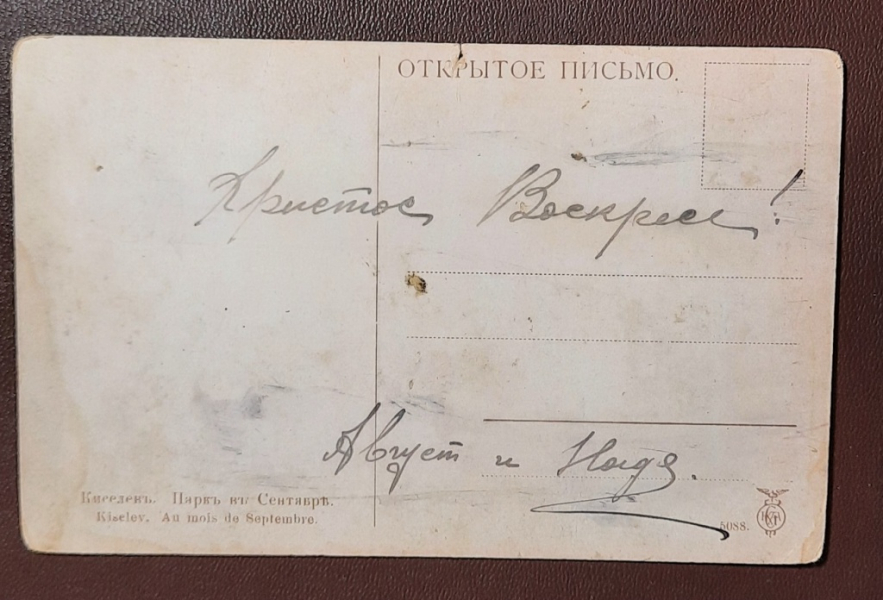 ОТКРЫТОЕ ПИСЬМО.
Христос Воскресе!
Август и Надя.
Киселевъ. Паркъ въ Сентябрѣ.
Kiselev. Au mois de Septembre.
5088.